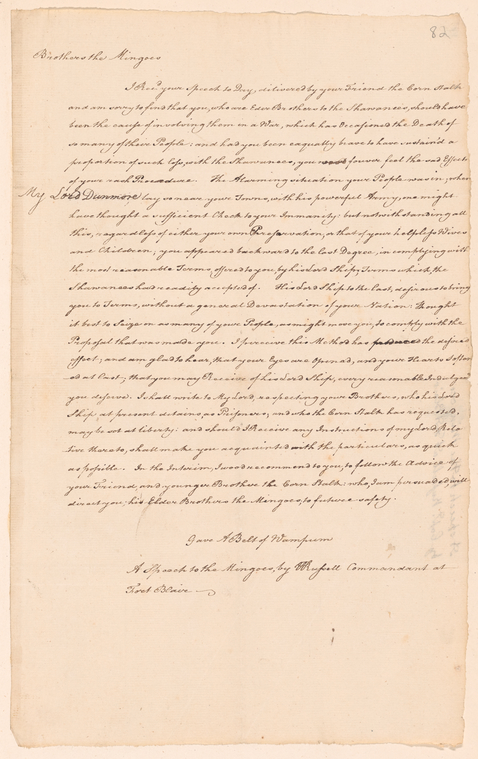 82
Brothers the Mingoes
I Recd. your Speech to Day, delivered by your Friend the Corn Stalk
and am sorry to find that you, who are Elder Brothers to the Shawanees, should have
been the cause of involving them in a War, which has Occasioned the Death of
so many of their People: and had you been equally brave to have sustain'd a
proportion of such loss, with the Shawanees, you now feel the sad Effects
of your rash Procedure. The Alarming situation your People was in, when
My Lord Dunmore lay so near your Towns, with his powerful Army, one might
have thought a sufficient Check to your Inmanity: but notwithstanding all
this, regardless of either your own Preservation, or that of your helpless Wives
and Children; you appeared backward to the last Degree, in complying with
the most reasonable Terms offered to you, by his Lord Ship; Terms which the
Shawanees had readily accepted of. His Lord Ship to the last, desirous to bring
you to Terms, without a general Devastation of your Nation: thought
it best to Seize on as many of your People, as might move you, to comply with the
Proposal that was made you. I perceive this Method has the desired
effect; and am glad to hear, that your Eyes are Opened, and your Hearts Soften-
ed at Last; that you may Receive of his Lord Ship, every reasonable
you deserve. I shall write to My Lord, respecting your Brothers, who his Lord
Ship at present detains as Prisoners; and who the Corn Stalk has requested,
may be set at liberty: and should I Receive any Instructions of my Lord Rela-
tive thereto, shall make you acquainted with the particulars, as quick
as possible. In the Interim, I wood recommend to you, to follow the Advice of
your Friend, and younger Brother the Corn Stalk: who, I am persuaded will
direct you; his Elder Brothers the Mingoes, to future safety.
Gave A Belt of Wampum
A Speech to the Mingoes, by W Russell Commandant at
Fort Blair